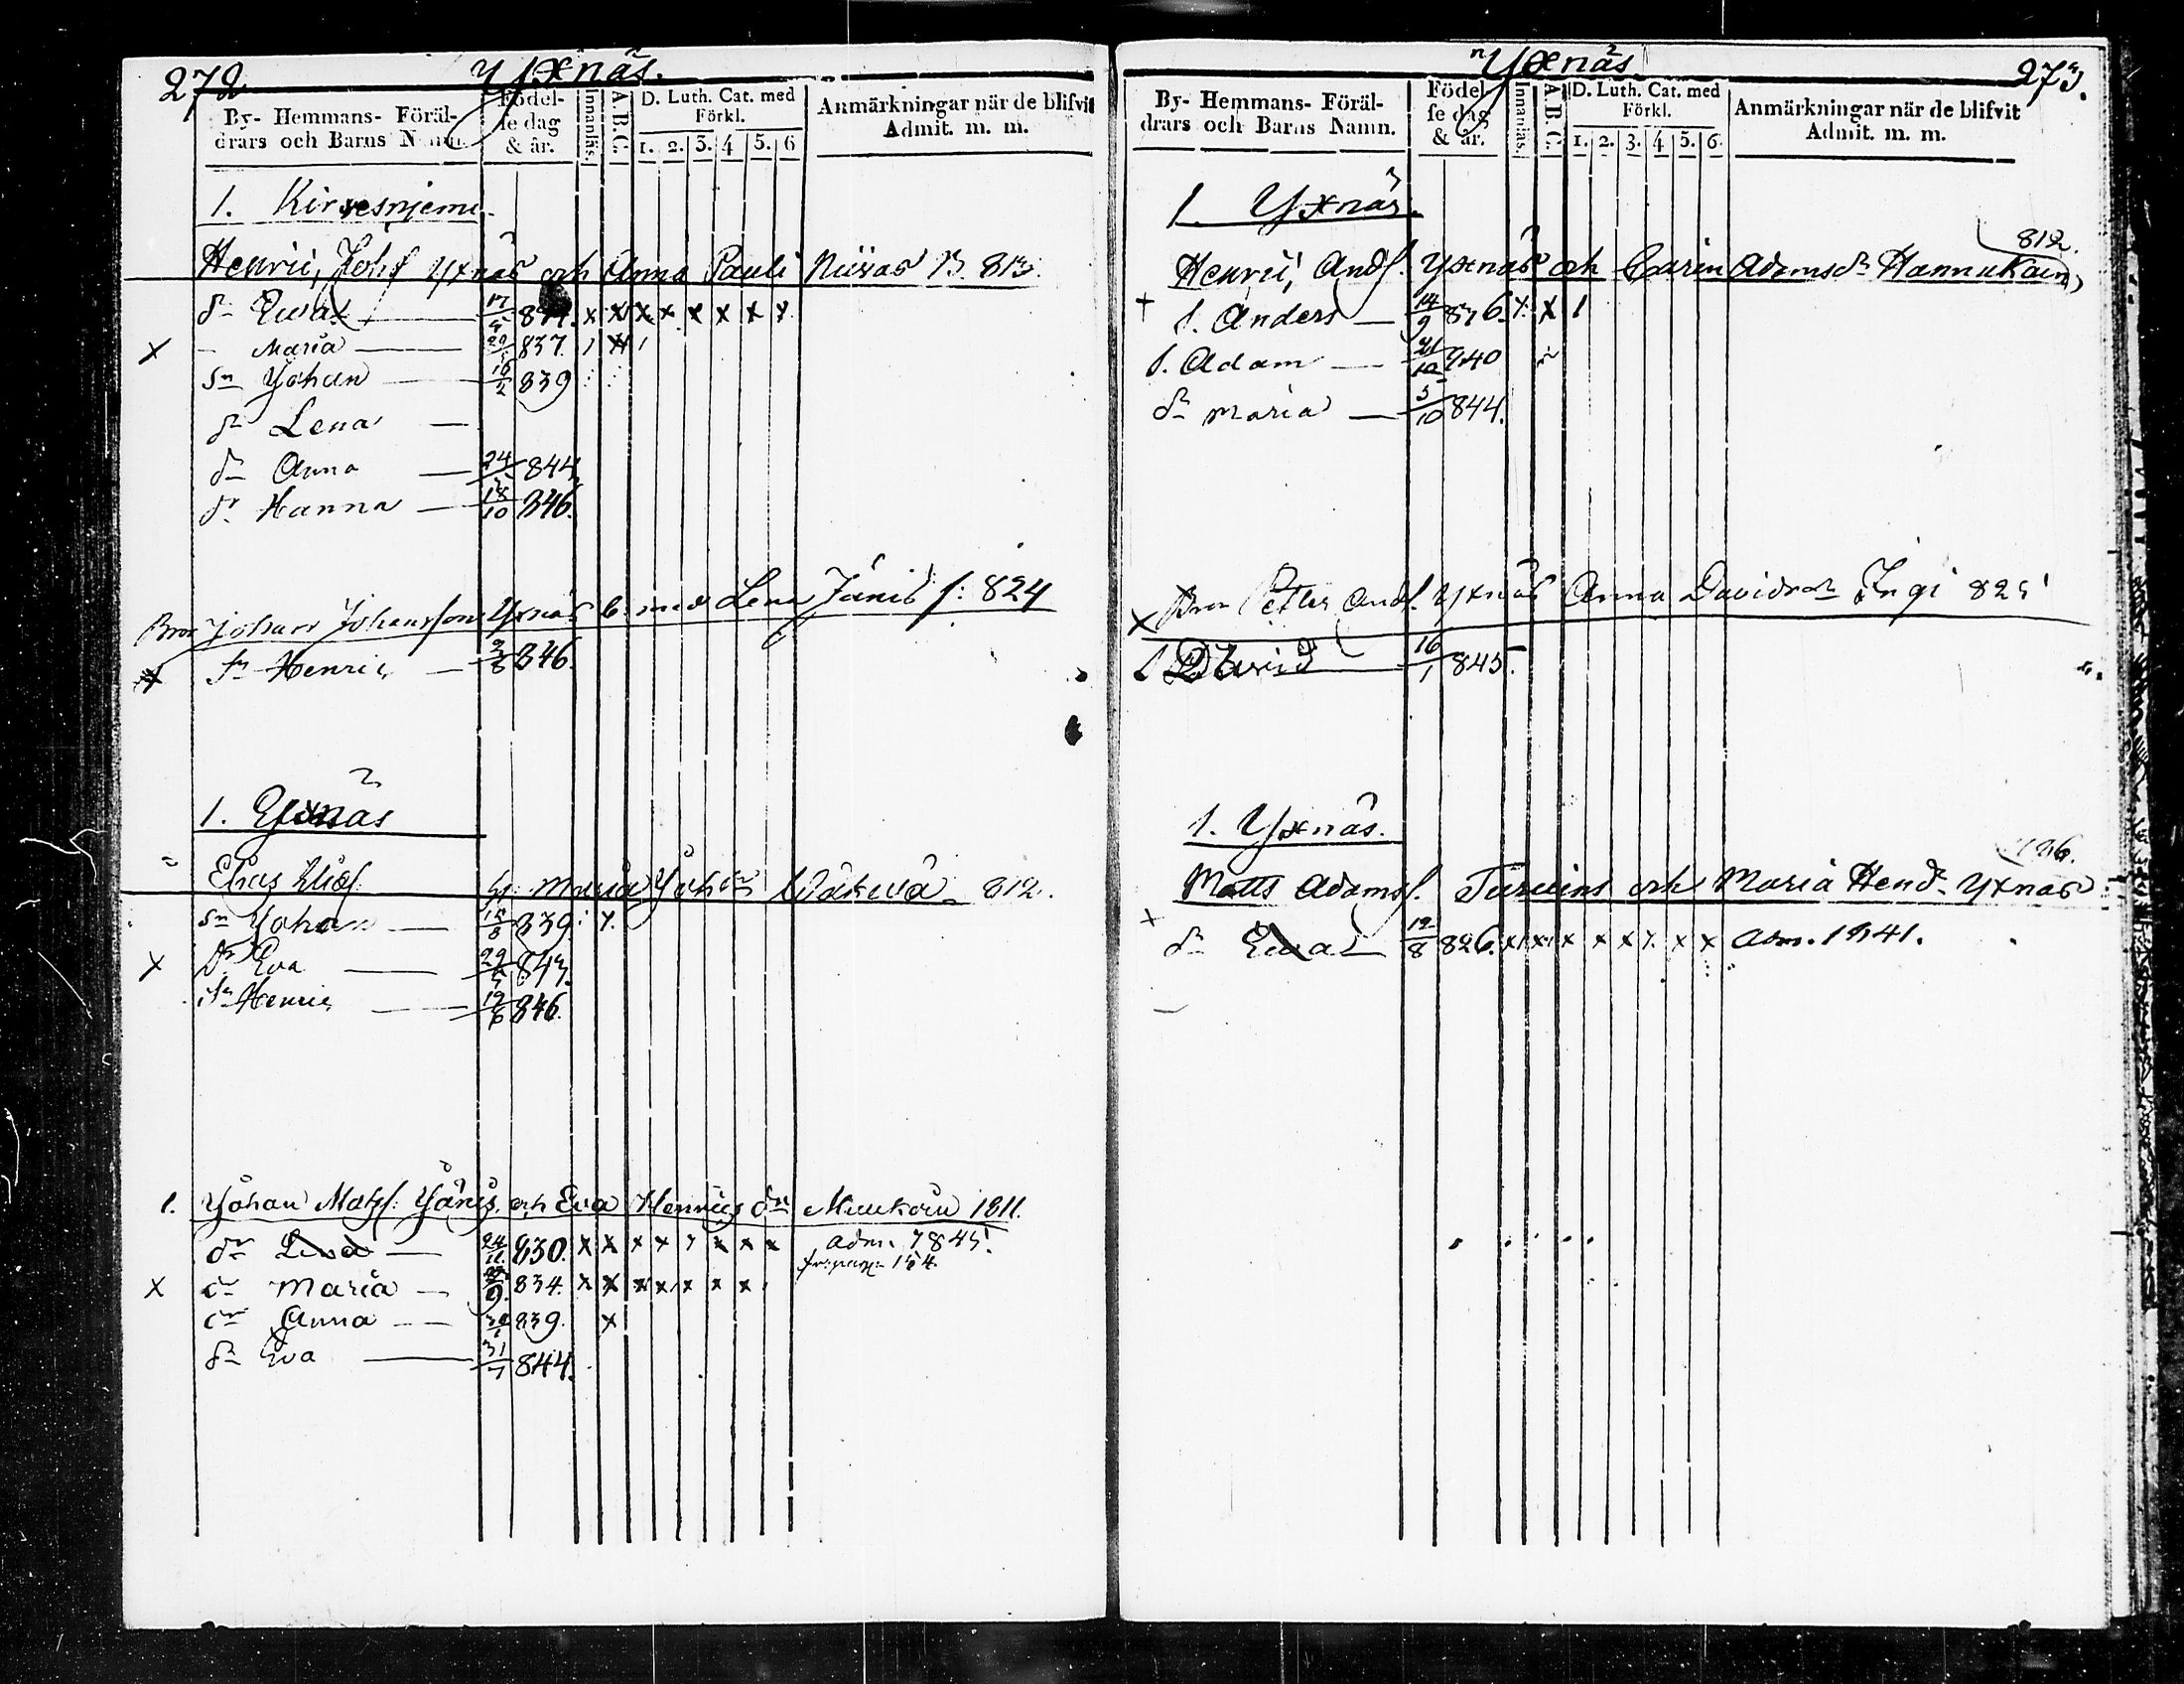 272 Yxnäs.
By- Hemmans- Föräl-
drars och Barns Namn.
Födel-
se dag
& år.
Innanläs.
A.B.C.
D. Luth. Cat. med
Förkl.
1. 2. 3. 4 5. 6
Anmärkningar när de blifvit
Admit. m. m.
1. Kirvesnjemi
Henric Johsf Yxnäs och Anna Pauli 813.
dr Ewa 17/5 8 x x x x x x x x
x - Maria 837.
Sn Johan 16/2 839
dr Lena
dr Anna 24 844
dr Hanna 18/10 846.
Bror Johan Johansson Yxnäs G. med Lena Jänis f: 824
Sn Henric 846.
1. Yxnäs
Elias Eliasf G: Maria Joh dr 812.
Sn Johan 8 839. x.
x Dr Eva 29 843.
Sn Henric 19/6 846.
1. Johan Matsf: Jänis och Eva Henrics dr Muukoin 1811.
dr Lena 24 830. x x x x x x x x adm. 1845.
x dr Maria 9 834. x x x x x x x
dr Anna 839. x
dr Eva 31/7 844.
Yxnäs 273.
By- Hemmans- Föräl-
drars och Barns Namn.
Födel-
se dag
& år.
Innanläs.
A.B.C.
D. Luth. Cat. med
Förkl.
1. 2. 3. 4 5. 6.
Anmärkningar när de blifvit
Admit. m. m.
1. Yxnäs.
812.
Henric Andf. Yxnäs och Carin Adamsdr Hannukain
+ S. Anders 14/9 836. x x 1
S. Adam 21/10 840
dr Maria 5/10 844.
x Bror Petter Andf. Yxnäs Anna Davidsdr Ingi 825
S David 16/1 845.
1. Yxnäs.
Matts Adamsf. och Maria Hendr Yxnäs
x dr Ewa 12/8 826. x x x x x x x x adm. 1841.